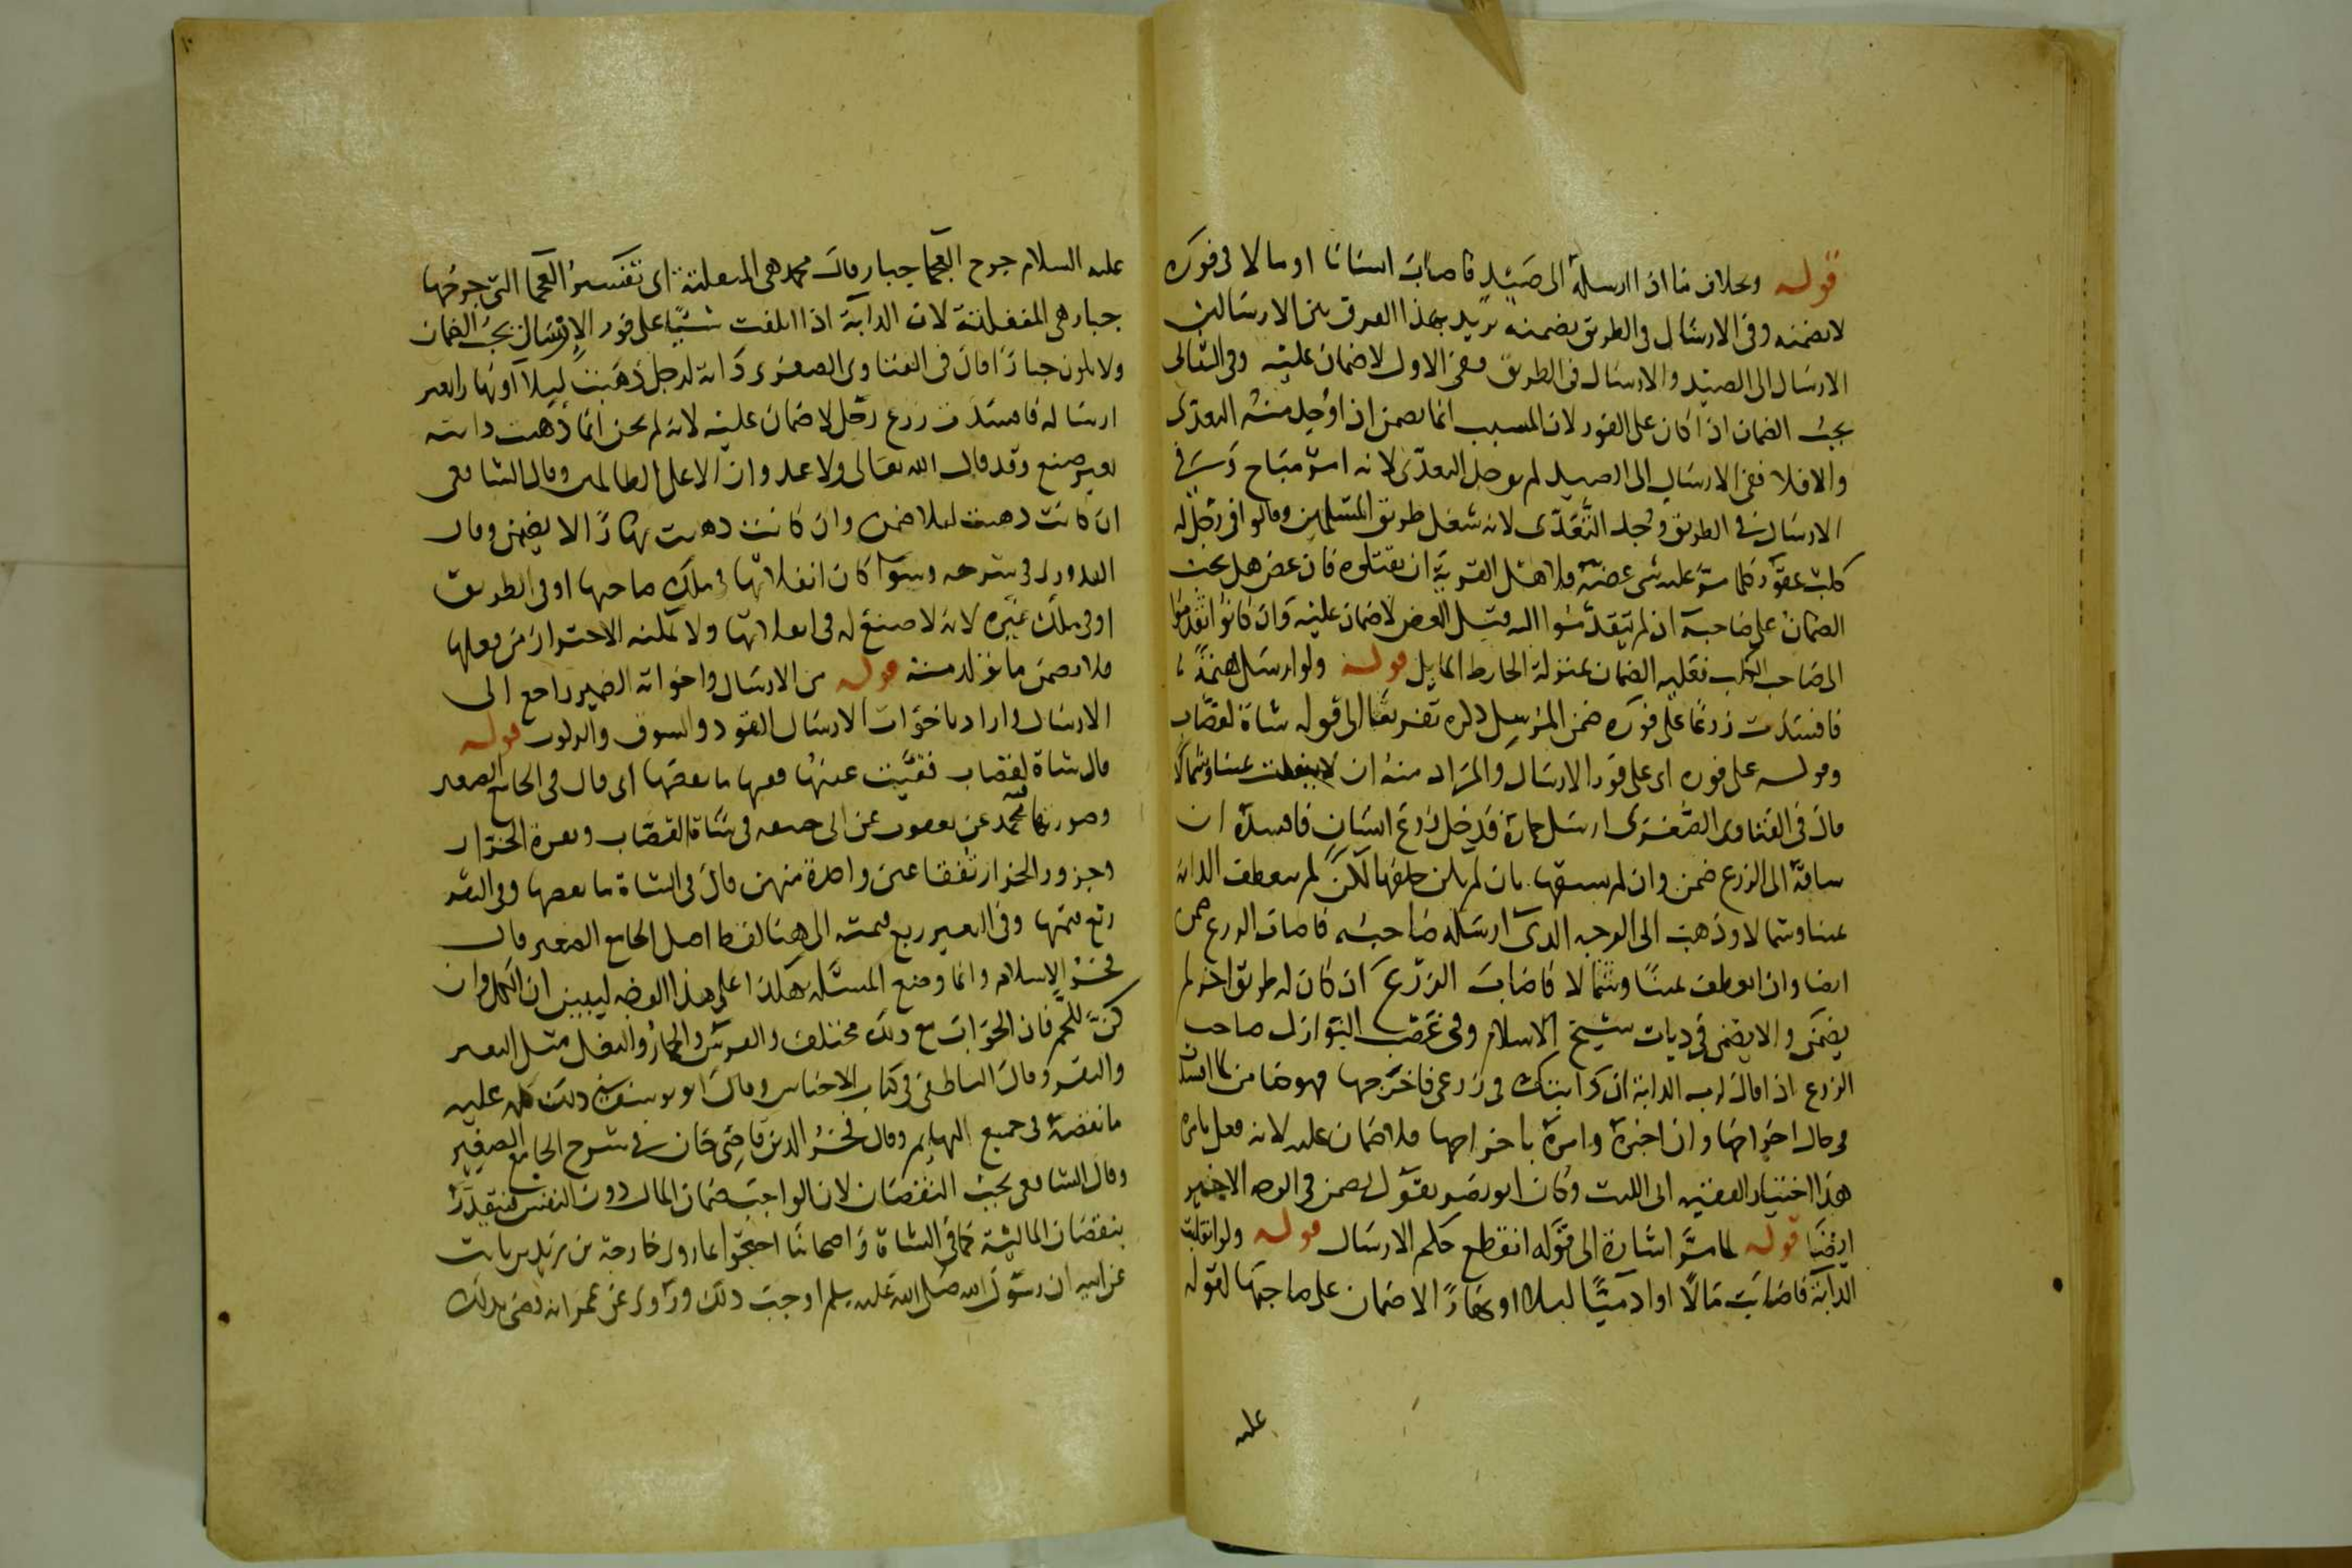 قوله وبخلاف ما اذا ارسله الى صيد فاصاب انسانا او مالا فى فوره
لا يضمنه وفى الارسال فى الطريق يضمنه يريد بهذا الفرق بين الارسالين
الارسال الى الصيد والارسال فى الطريق ففى الاول لا ضمان عليه وفى الثانى
يجب الضمان اذا كان على الفور لان المسبب انما يضمن اذا وجد منه التعدى
والا فلا ففى الارسال الى الصيد لم يوجد التعدى لانه امر مباح وفى
الارسال فى الطريق وجد التعدى لانه شغل طريق المسلمين وقالوا فى رجل له
كلب عقور كلما مر عليه شى عضه فلاهل القرية ان يقتلوه فان عض هل يجب
الضمان على صاحبه ان لم يتقدموا اليه قبل العض لا ضمان عليه وان كانوا تقدموا
الى صاحب الكلب فعليه الضمان بمنزلة الحايط المايل قوله ولو ارسل بهيمة
فافسدت زرعا على فوره ضمن المرسل ذكره تفريعا الى قوله شاة لقصاب
وقوله على فوره اى على فور الارسال والمراد منه ان لا ينعطف يمينا وشمالا
قال فى الفتاوى الصغرى ارسل حماره فدخل زرع انسان فافسده ان
ساقه الى الزرع ضمن وان لم يسقها بان لم يكن خلفها لكن لم ينعطف الدابة
يمينا وشمالا وذهبت الى الوجه الذى ارسله صاحبه فاصاب الزرع ضمن
ايضا وان انعطف يمينا وشمالا فاصاب الزرع ان كان له طريق اخر لم
يضمن والا يضمن فى ديات شيخ الاسلام وفى غصب النوازل صاحب
الزرع اذا قال لرب الدابة ان دابتك فى زرعى فاخرجها فهو ضامن لما افسدت
فى حال اخراجها وان اخبره وامره باخراجها فلا ضمان عليه لانه فعل بامره
هذا اختيار الفقيه ابى الليث وكان ابو نصر يقول يضمن فى الوجه الاخير
ايضا قوله لما مر اشارة الى قوله انقطع حكم الارسال قوله ولو انفلتت
الدابة فاصابت مالا او ادميا ليلا او نهارا لا ضمان على صاحبها لقوله
عليه
عليه السلام جرح العجما جبار وقال محمد هى المنفلتة اى تفسير العجما التى جرحها
جبار هى المنفلتة لان الدابة اذا اتلفت شيئا على فور الارسال يجب الضمان
ولا يكون جبارا قال فى الفتاوى الصغرى دابة لرجل ذهبت ليلا او نهارا بغير
ارساله فافسدت زرع رجل لا ضمان عليه لانه لم يجن انما ذهبت دابته
بغير صنع وقد قال الله تعالى ولا عدوان الا على الظالمين وقال الشافعى
ان كانت ذهبت ليلا ضمن وان كانت ذهبت نهارا لا يضمن وقال
القدورى فى شرحه وسوا كان انفلاتها فى ملك صاحبها او فى الطريق
او فى ملك غيره لانه لا صنع له فى انفلاتها ولا يمكنه الاحتراز من فعلها
فلا يضمن ما تولد منه قوله من الارسال واخواته الضمير راجع الى
الارسال واراد باخوات الارسال القود والسوق والركوب قوله
قال شاة لقصاب فقيت عينها ففيها ما نقصها اى قال فى الجامع الصغير
وصورتها محمد عن يعقوب عن ابى حنيفة فى شاة القصاب وبقرة الجزار
وجزور الجزار تفقا عين واحدة منهن قال فى الشاة ما نقصها وفى البقرة
ربع قيمتها وفى البعير ربع قيمته الى هنا لفظ اصل الجامع الصغير قال
فخر الاسلام وانما وضع المسئلة هكذا على هذا الوجه ليبين ان الكل وان
كن للحم فان الجواب مع ذلك مختلف والفرس والحمار والبغل مثل البعير
والبقر وقال الناطفى فى كتاب الاجناس وقال ابو يوسف فى ذلك كله عليه
ما نقصه فى جميع البهايم وقال فخر الدين قاضى خان فى شرح الجامع الصغير
وقال الشافعى يجب النقصان لان الواجب ضمان المال دون النفس فيتقدر
بنقصان المالية كما فى الشاة واصحابنا احتجوا بما روى خارجة بن زيد بن ثابت
عن ابيه ان رسول الله صلى الله عليه وسلم اوجب ذلك وروى عن عمر انه قضى بذلك